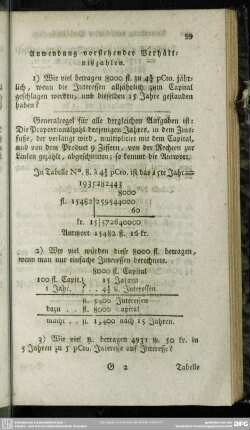 99
Anwendung vorstehender Verhält-
nißzahlen.
1) Wie viel betragen 8000 fl. zu 4½ pCto. jähr-
lich, wenn die Interessen alljährlich zum Capital
geschlagen werden, und dieselben 15 Jahre gestanden
haben?
Generalregel für alle dergleichen Aufgaben ist:
Die Proportionalzahl derjenigen Jahren, in dem Zins-
fuße, der verlangt wird, multiplicirt mit dem Capital,
und von dem Product 9 Ziffern, von der Rechten zur
Linken gezählt, abgeschnitten; so kommt die Antwort.
In Tabelle N°. 8. à 4½ pCto. ist das 15te Jahr
1935282443
8000
fl. 15482|259544000
60
kr. 15|572640000
Antwort 15482 fl. 16 kr.
2) Wie viel würden diese 8000 fl. betragen,
wenn man nur einfache Interessen berechnete.
8000 fl. Capital
100 fl. Capit. 15 Jahren
1 Jahr. 4½ fl. Interessen.
fl. 5400 Interessen
dazu fl. 8000 Capital
macht fl. 13400 nach 15 Jahren.
3) Wie viel betragen 4931 fl. 50 kr. in
5 Jahren zu 5 pCto. Interesse auf Interesse?
G 2
Tabelle